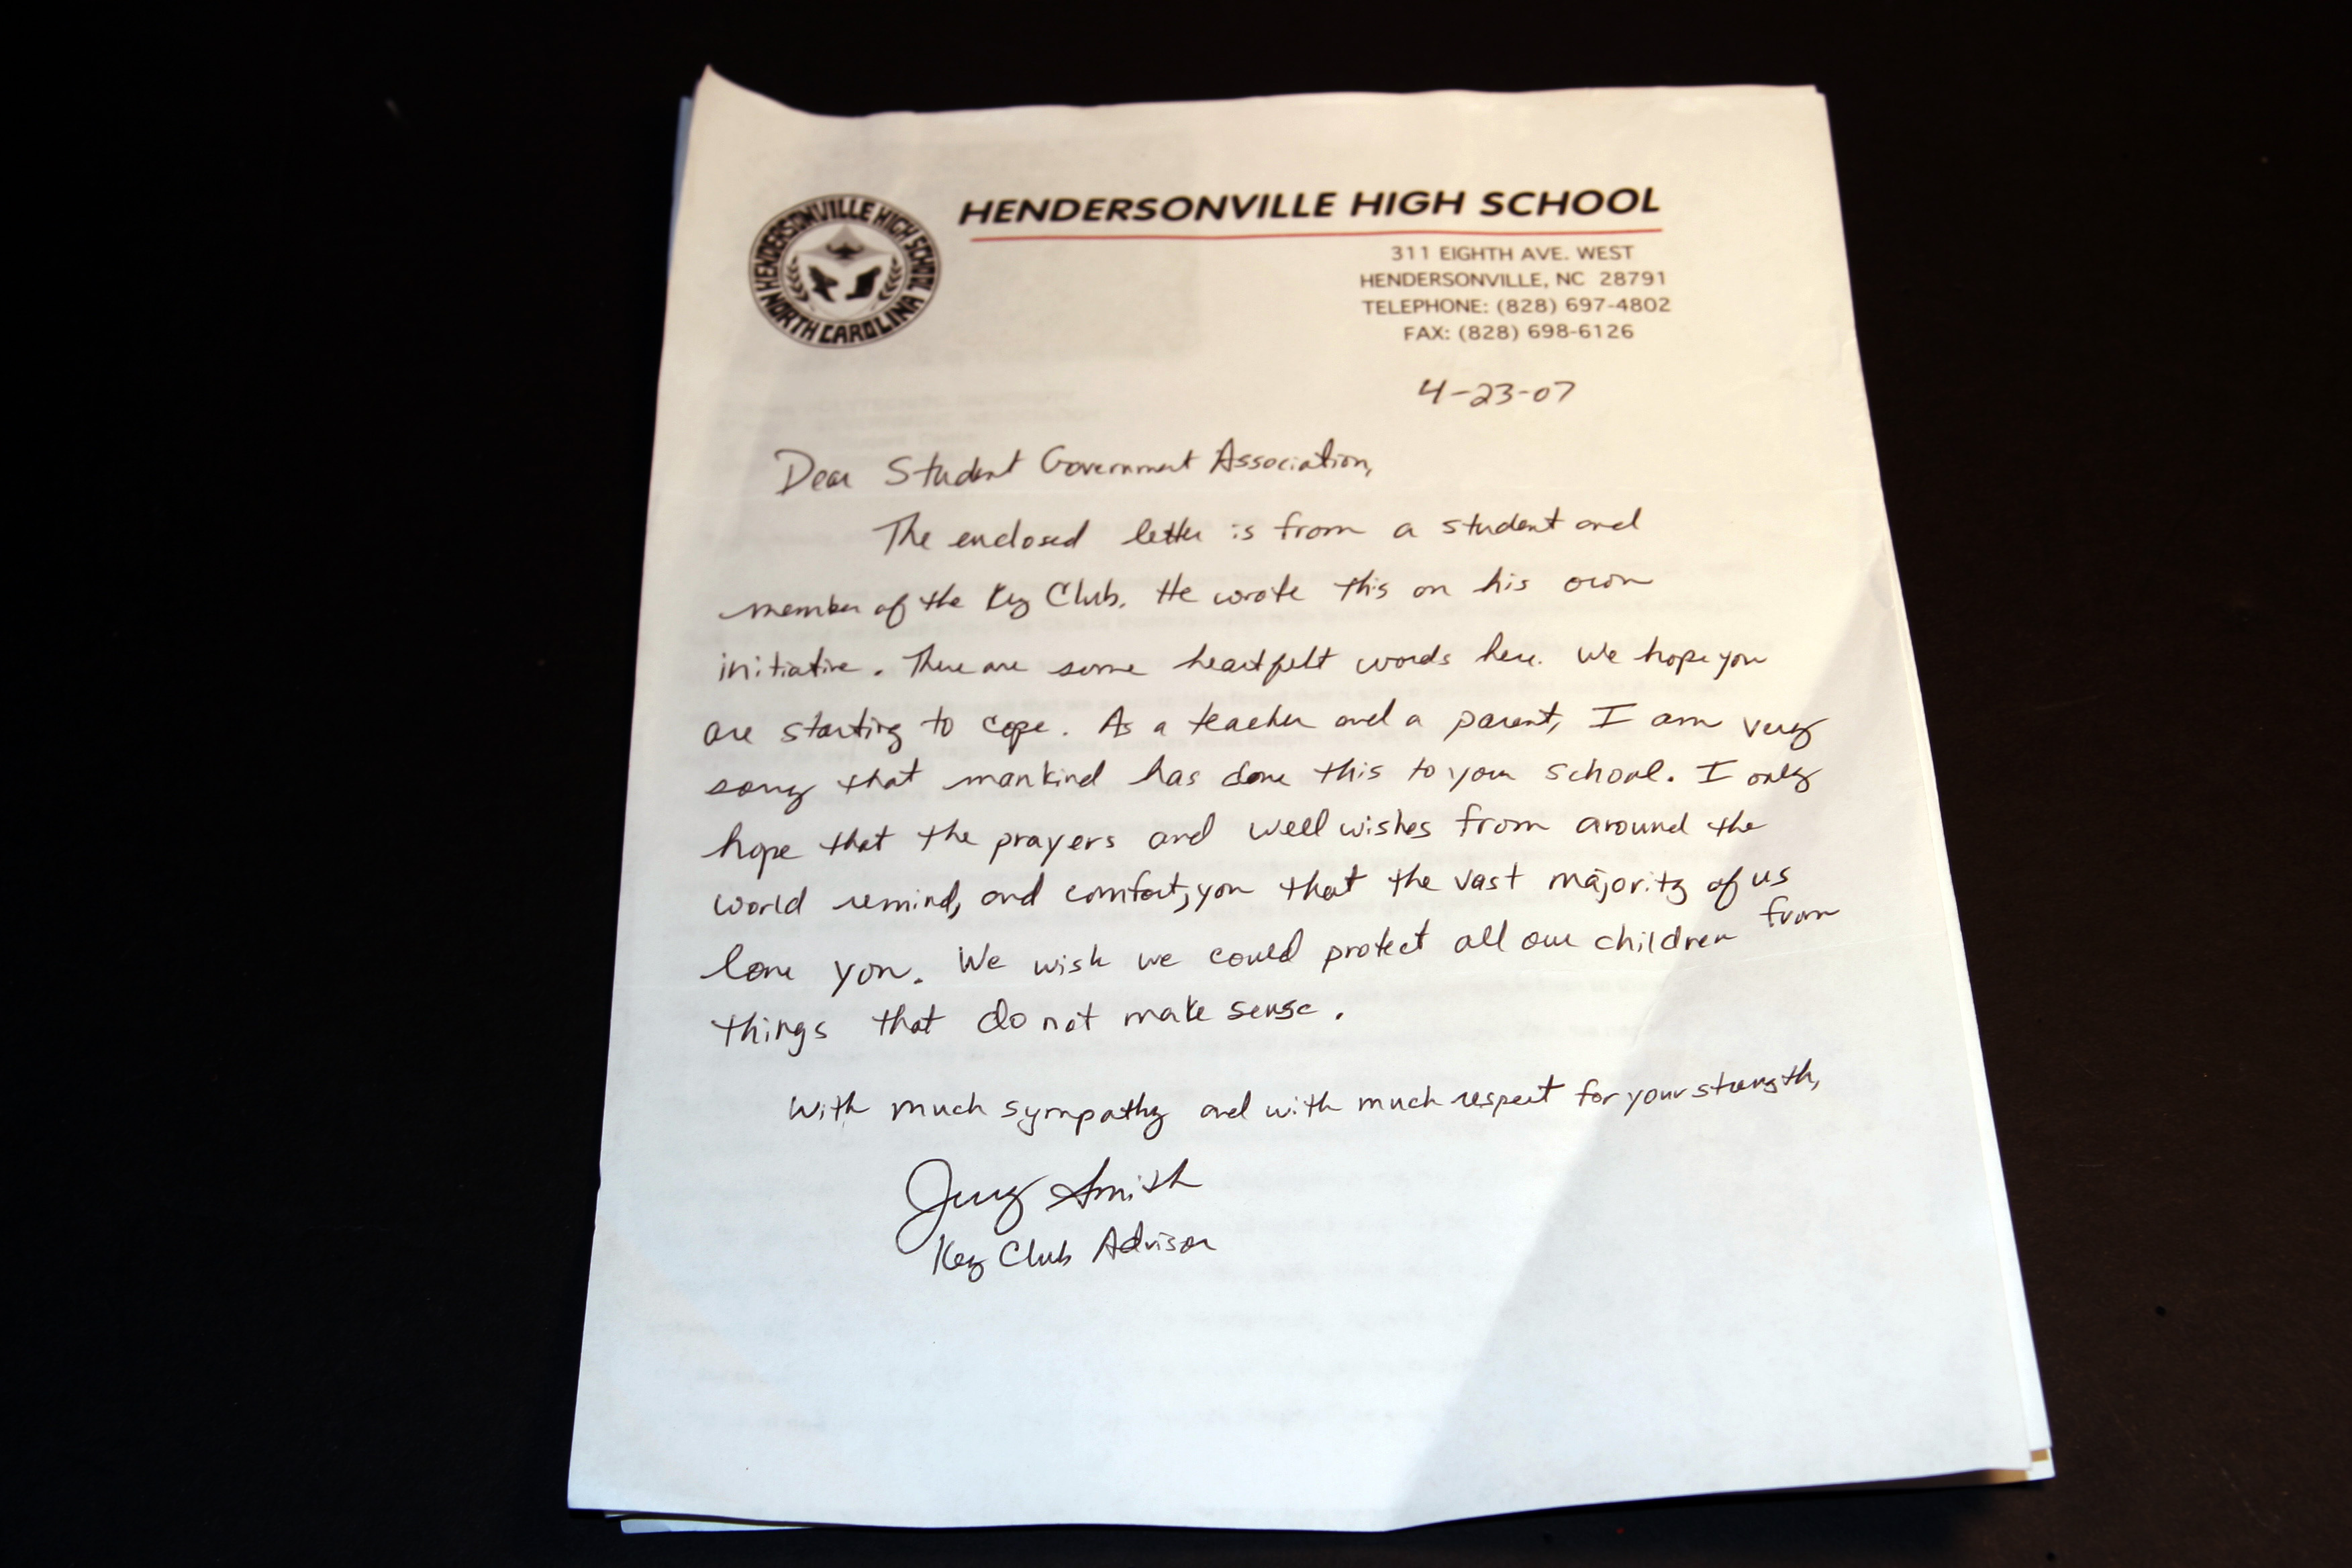 HENDERSONVILLE HIGH SCHOOL
NORTH CAROLINA
HENDERSONVILLE HIGH SCHOOL
311 EIGHTH AVE. WEST
HENDERSONVILLE, NC 28791
TELEPHONE: (828) 697-4802
FAX: (828) 698-6126
4-23-07
Dear Student Government Association,
The enclosed letter is from a student and
member of the Key Club. He wrote this on his own
initiative. There are some heartfelt words here. We hope you
are starting to cope. As a teacher and a parent, I am very
sorry that mankind has done this to your school. I only
hope that the prayers and well wishes from around the
world remind, and comfort, you that the vast majority of us
love you. We wish we could protect all our children from
things that do not make sense.
With much sympathy and with much respect for your strength,
Jerry Smith
Key Club Advisor